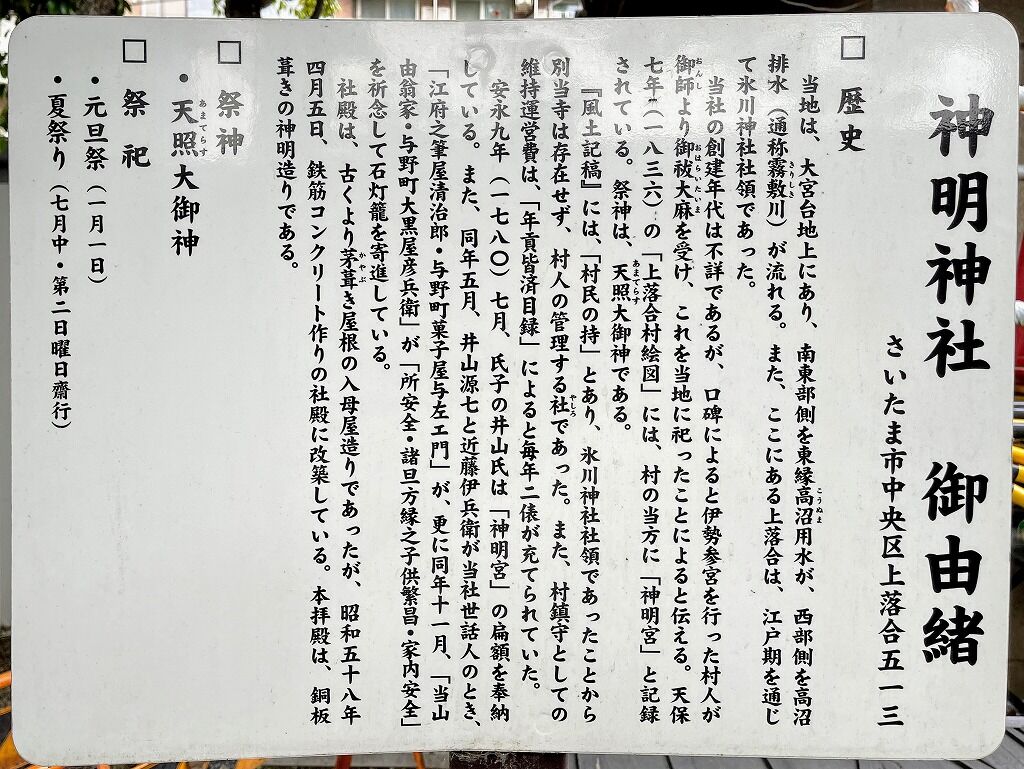 神明神社 御由緒
さいたま市中央区上落合五-一-三
□ 歴史
当地は、大宮台地上にあり、南東部側を東縁高沼用水が、西部側を高沼
排水（通称霧敷川）が流れる。また、ここにある上落合は、江戸期を通じ
て氷川神社社領であった。
当社の創建年代は不詳であるが、口碑によると伊勢参宮を行った村人が
御師より御祓大麻を受け、これを当地に祀ったことによると伝える。天保
七年（一八三六）の「上落合村絵図」には、村の当方に「神明宮」と記録
されている。祭神は、天照大御神である。
『風土記稿』には、「村民の持」とあり、氷川神社社領であったことから
別当寺は存在せず、村人の管理する社であった。また、村鎮守としての
維持運営費は、「年貢皆済目録」によると毎年二俵が充てられていた。
安永九年（一七八〇）七月、氏子の井山氏は「神明宮」の扁額を奉納
している。また、同年五月、井山源七と近藤伊兵衛が当社世話人のとき、
「江府之筆屋清治郎・与野町菓子屋与左エ門」が、更に同年十一月、「当山
由翁家・与野町大黒屋彦兵衛」が「所安全・諸旦方縁之子供繁昌・家内安全」
を祈念して石灯籠を寄進している。
社殿は、古くより茅葺き屋根の入母屋造りであったが、昭和五十八年
四月五日、鉄筋コンクリート作りの社殿に改築している。本拝殿は、銅板
葺きの神明造りである。
□ 祭神
・天照大御神
□ 祭祀
・元旦祭（一月一日）
・夏祭り（七月中・第二日曜日齋行）